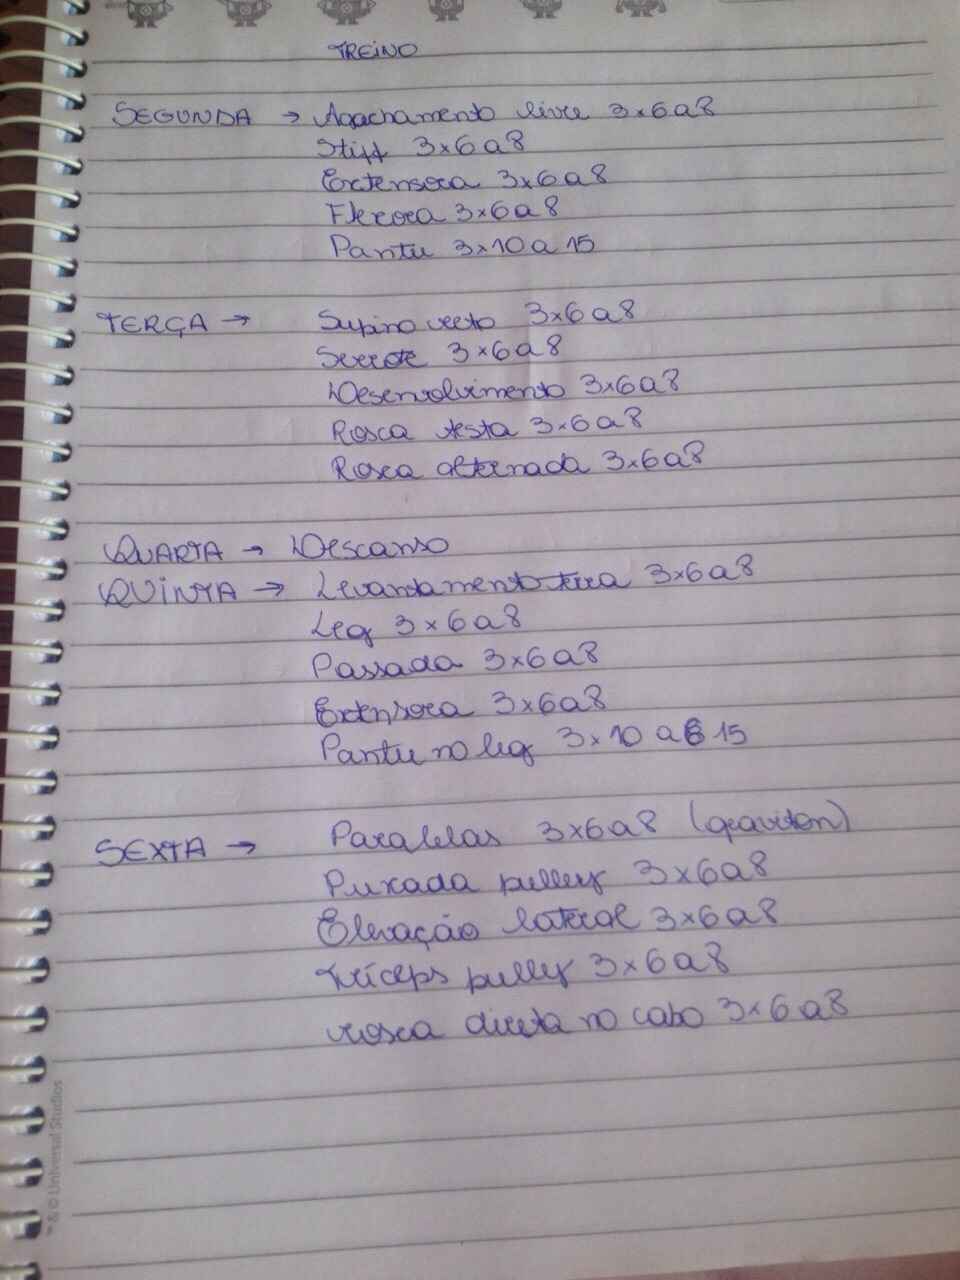 TREINO
SEGUNDA → Agachamento livre 3x6a8
Stiff 3x6a8
Extensora 3x6a8
Flexora 3x6a8
Pantu 3x10a15
TERÇA → Supino reto 3x6a8
Serrote 3x6a8
Desenvolvimento 3x6a8
Rosca testa 3x6a8
Rosca alternada 3x6a8
QUARTA → Descanso
QUINTA → Levantamento terra 3x6a8
Leg 3x6a8
Passada 3x6a8
Extensora 3x6a8
Pantu no leg 3x10 a 15
SEXTA → Paralelas 3x6a8 (graviton)
Puxada pulley 3x6a8
Elevação lateral 3x6a8
Tríceps pulley 3x6a8
rosca direta no cabo 3x6a8
& © Universal Studios